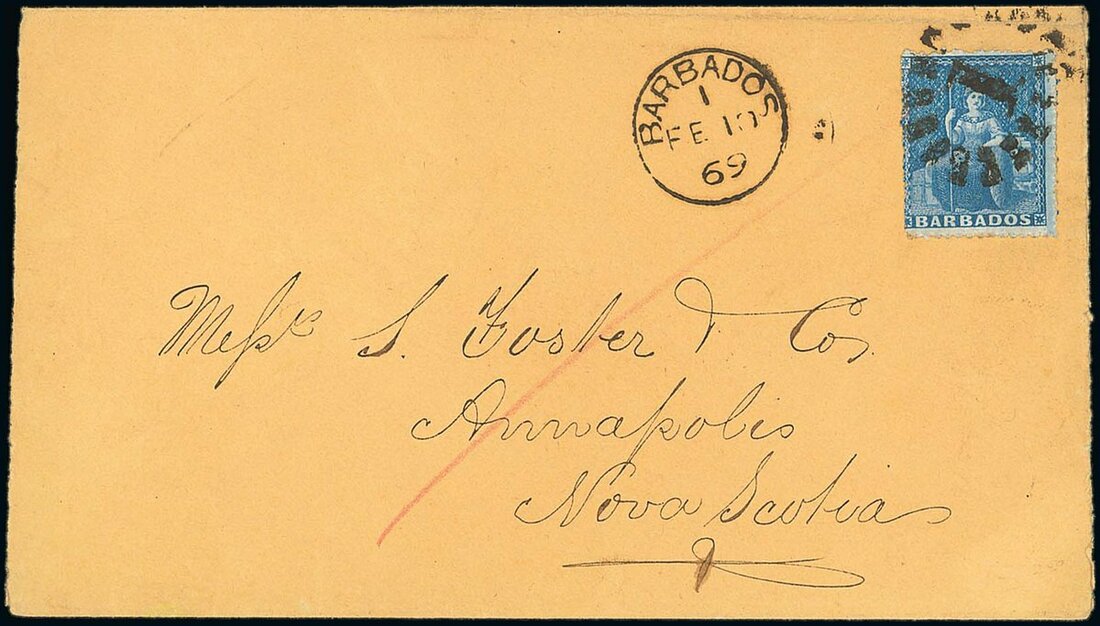 BARBADOS
1
FE 10
69
BARBADOS
Messrs S. Foster & Co.
Annapolis
Nova Scotia